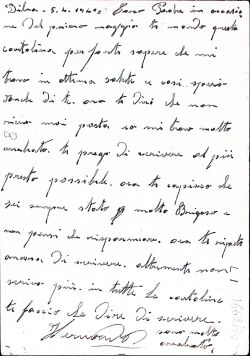 Dilna - 5. 4. 1942 Caro Padre in occasio
ne del primo maggio ti mando questa
cartolina per farti sapere che mi
trovo in ottima salute e cosi spero
anche di te. ora ti dirò che non
ricevo mai posta io mi trovo molto
arabiato. ti prego di scrivere al più
presto possibile. ora ti capisco che
sei sempre stato molto Bugioso e
non pensi da risparmiare. ora ti ripeto
ancora di scrivere. altrimenti non
scrivo più. in tutte le cartoline
ti faccio Le Dire di scrivere.
sono molto
arrabiato.